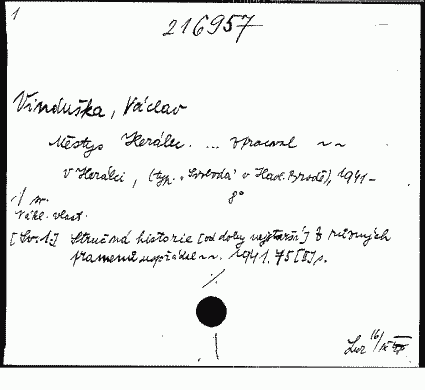 1
216957
Vinduška, Václav
Městys Herálec. ... zpracoval ~~
V Herálci, (typ. "Svoboda" v Něm. Brodě), 1941-
8°
Nákl. vlast.
[Sv. 1.] Stručná historie [od doby nejstarší] z různých
pramenů uspořádal ~~. 1941. 75 [II] s.